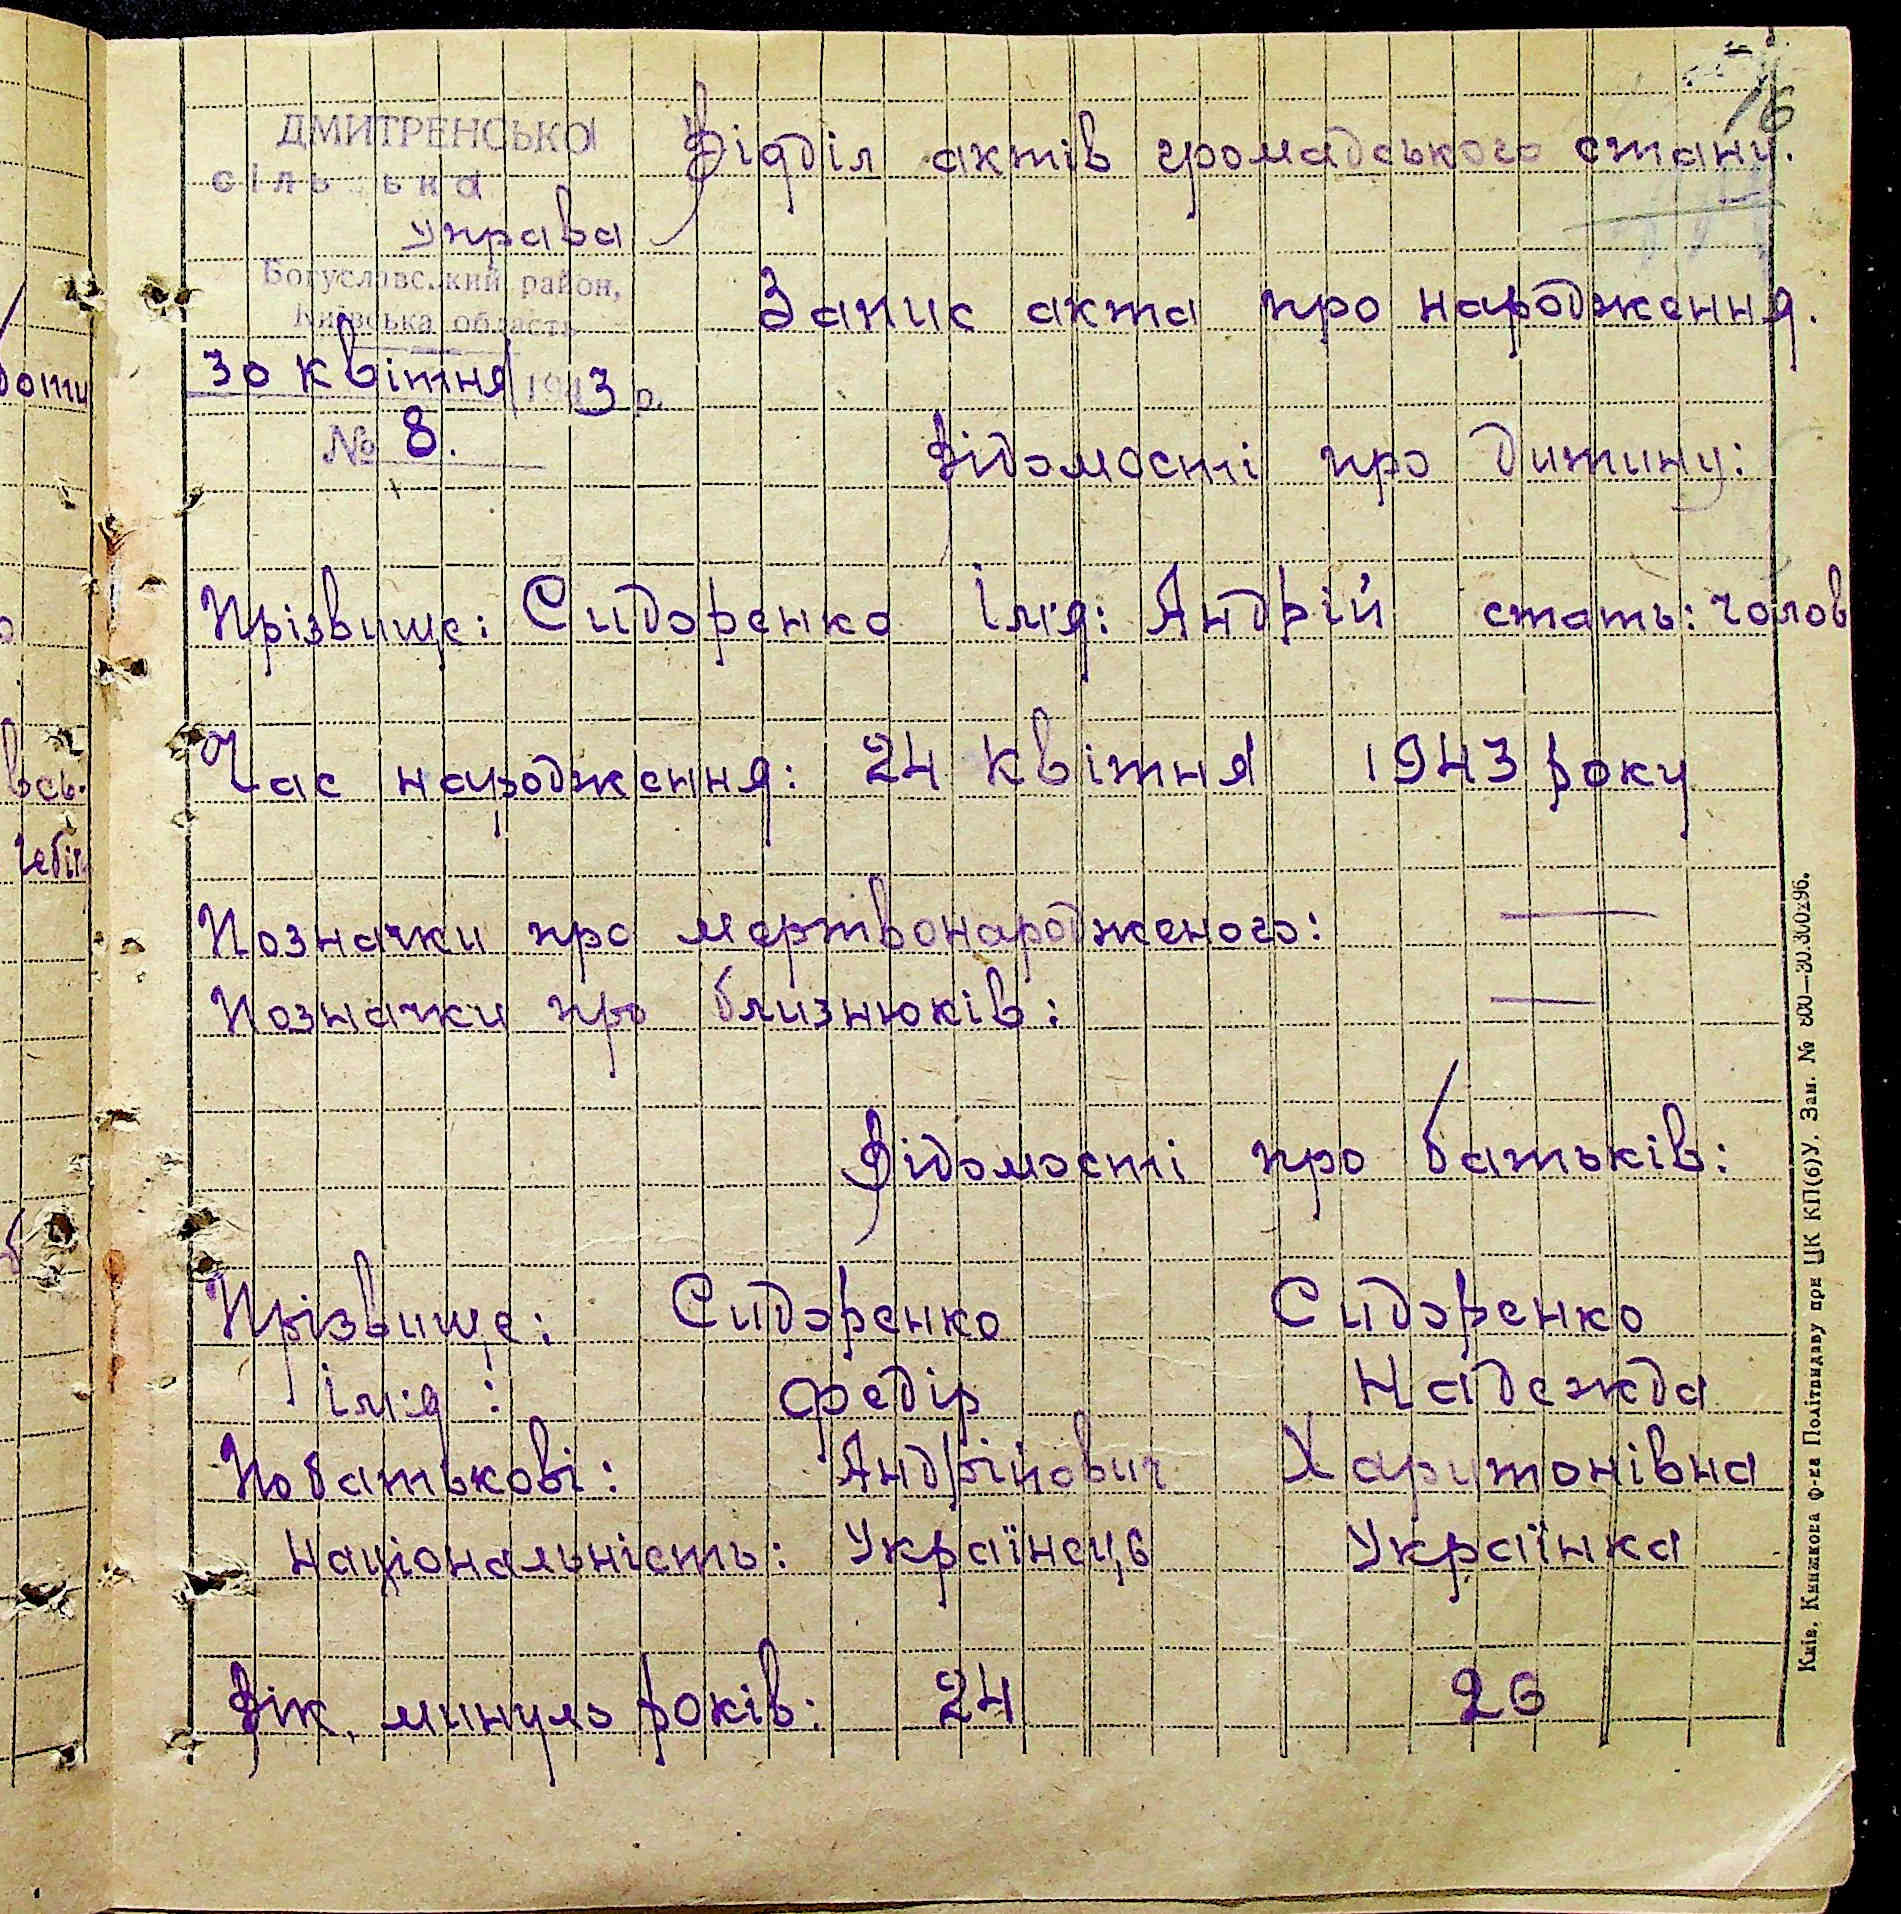 16
ДМИТРЕНСЬКА
сільська
управа
Богуславський район,
Київська область
30 квітня 1943 р.
№ 8.
Відділ актів громадського стану.
Запис акта про народження.
Відомості про дитину:
Прізвище: Сидоренко Ім'я: Андрій стать: чолов
Час народження: 24 квітня 1943 року
Позначки про мертвонародженого: —
Позначки про близнюків: —
Відомості про батьків:
Прізвище: Сидоренко Сидоренко
ім'я: Федір Надежда
По батькові: Андрійович Харитонівна
Національність: Українець Українка
Вік, минуло років: 24 26
Київ, Книжкова ф-ка Політвидаву при ЦК КП(б)У. Зам. № 800—30.300х96.